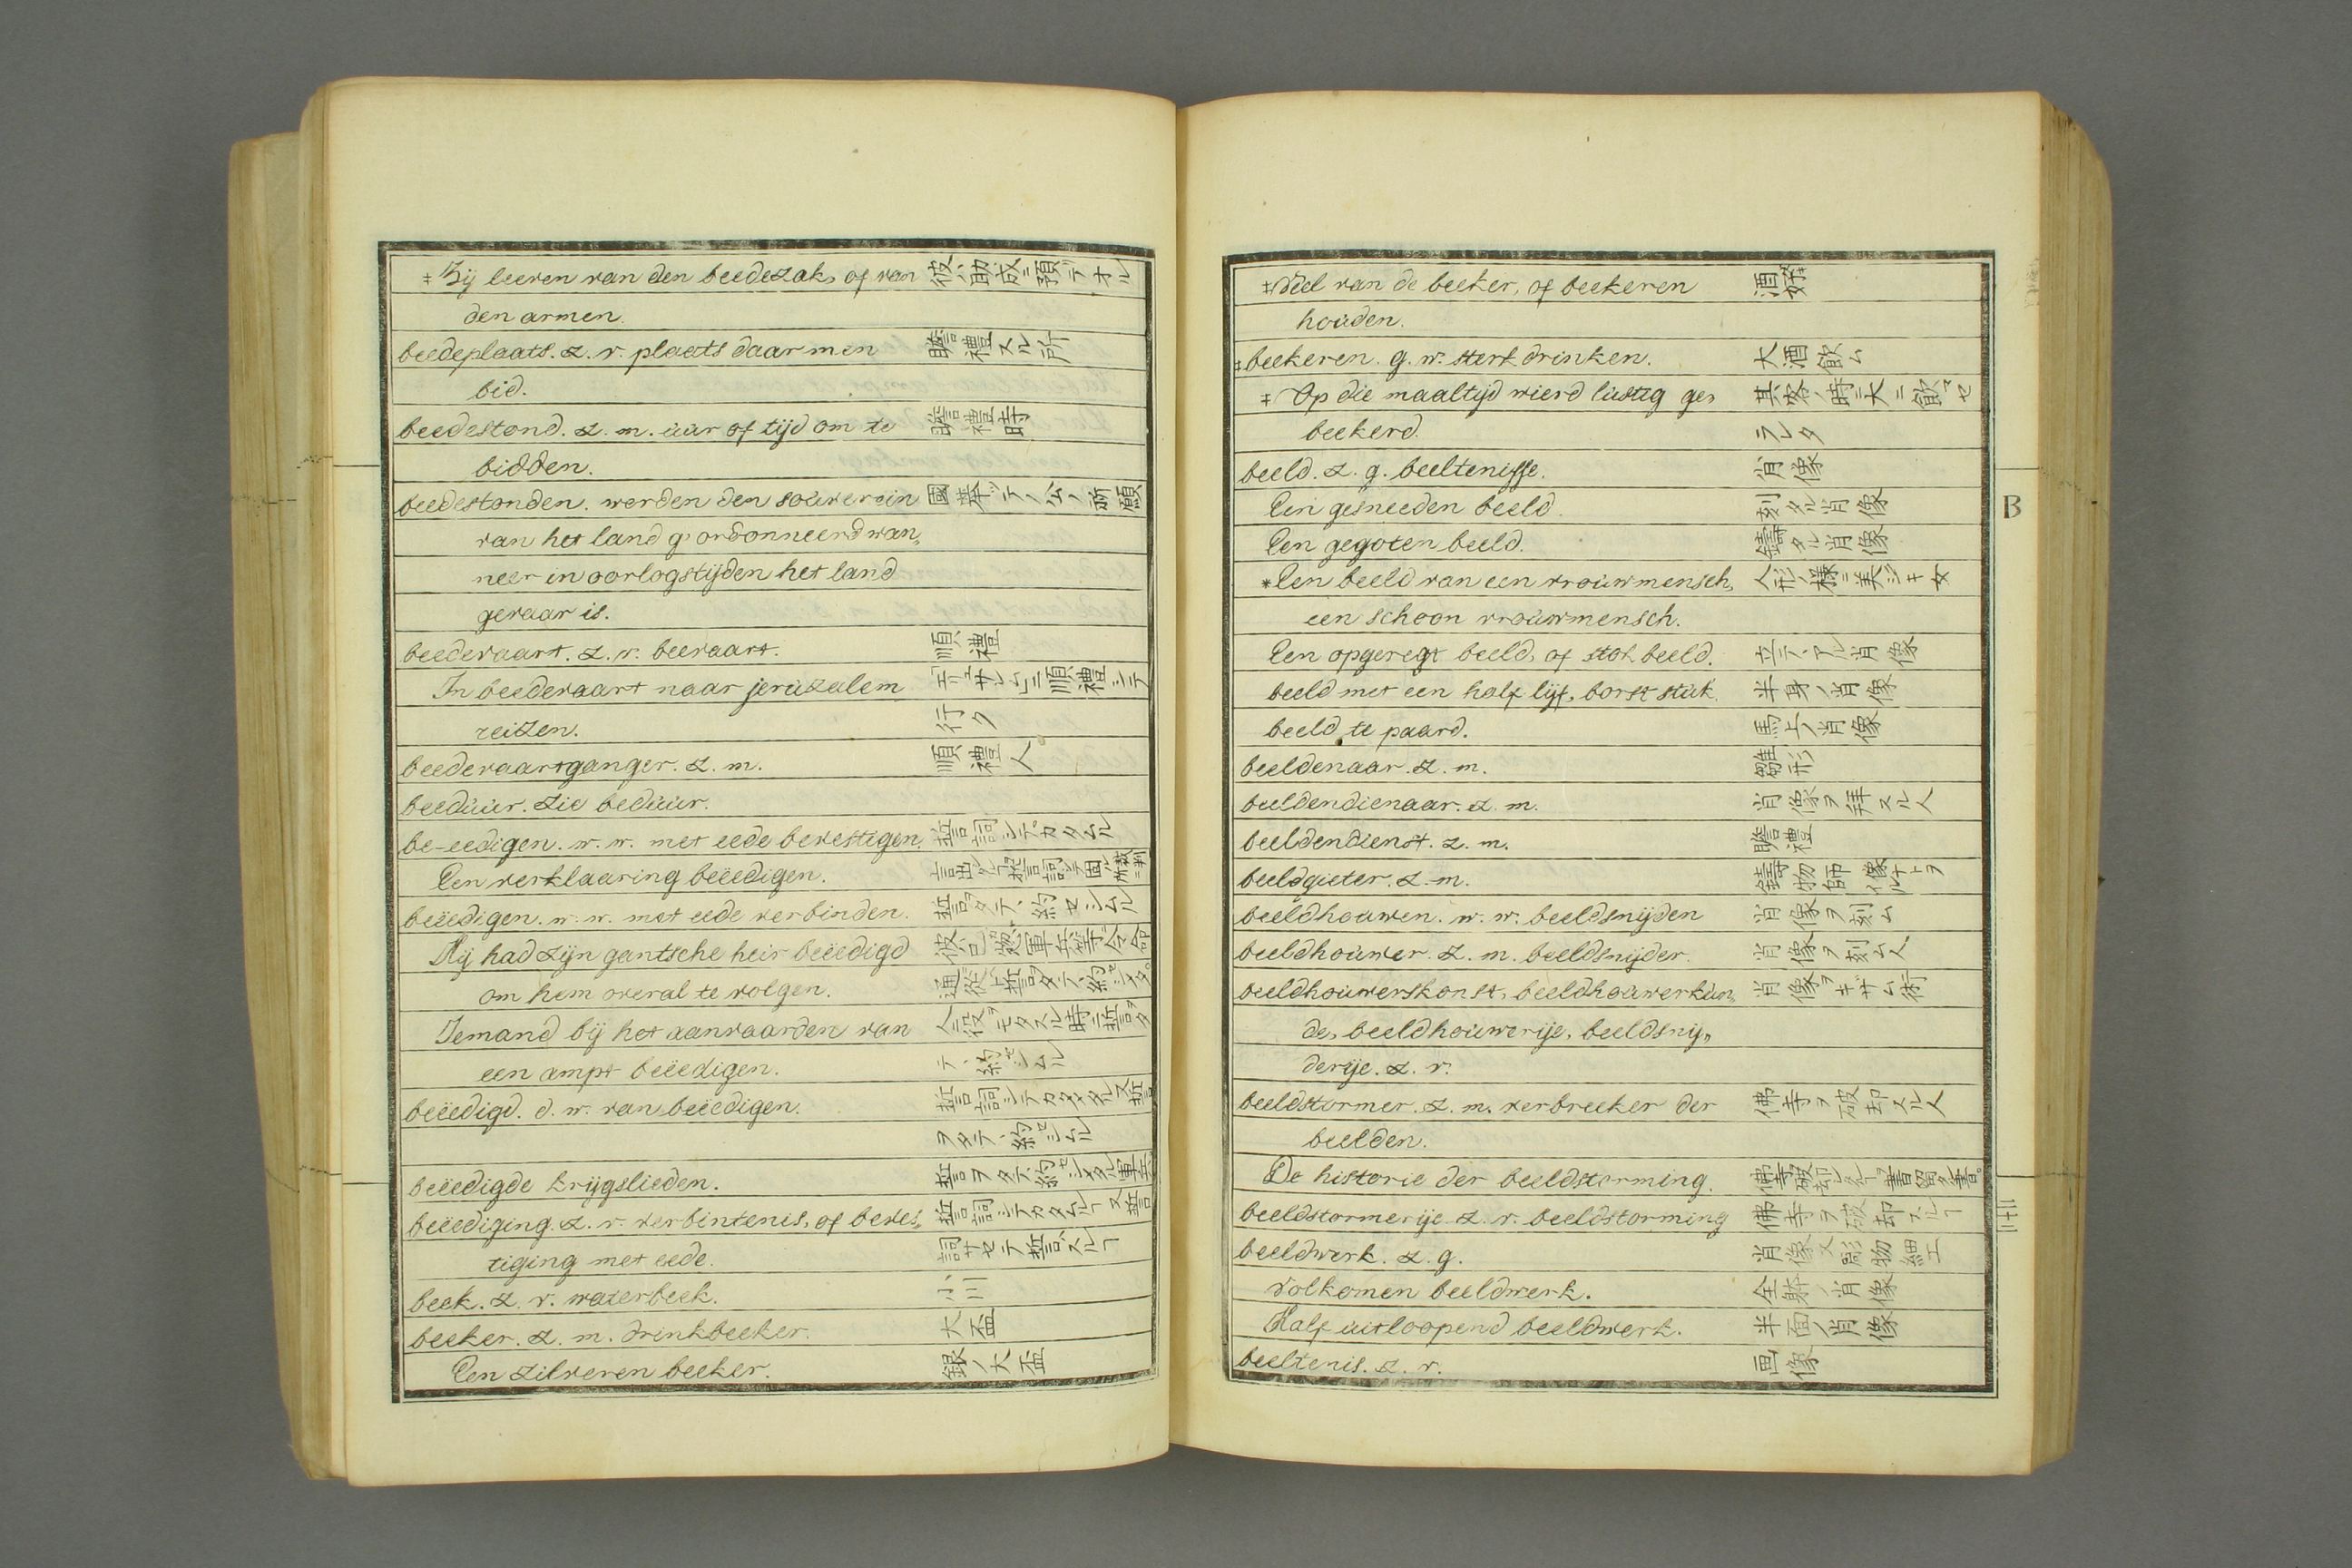 ‡ Zij leeven van den beedezak, of van 彼ハ助成ニ預テオル
den armen.
beedeplaats. z. v. plaats daar men 瞻禮スル所
bid.
beedestond. z. m. uur of tijd om te 瞻禮時
bidden.
beedestonden. werden den souverein
van het land g'ordonneerd wan„
neer in oorlogstijden het land
gevaar is.
beedevaart. z. v. beevaart. 順禮
In beedevaart naar jeruzalem 順禮シテ
reizen. 行ク
beedevaartganger. z. m. 順禮人
beeduur. zie beduur.
be-eedigen. w. w. met eede bevestigen. 誓詞シテカタムル
Een verklaaring beëedigen.
beëedigen. w. w. met eede verbinden. 誓言ヲタテヽ約セシムル
Hij had zijn gantsche heir beëedigd
om hem overal te volgen.
Iemand bij het aanvaarden van
een ampt beëedigen. テヽ約セシムル
beëedigd. d. w. van beëedigen. 誓詞シテカタメタル又誓言
ヲタテヽ約セシムル
beëedigde krijgslieden. 誓言ヲタテヽ約セシメタル軍兵
beëediging. z. v. verbintenis, of beves„ 誓詞シテカタムルヿ又誓
tiging met eede. 詞サセテ誓言スルヿ
beek. z. v. waterbeek. 小川
beeker. z. m. drinkbeeker. 大盃
Een zilveren beeker. 銀ノ大盃
‡ Veel van de beeker, of beekeren 酒好
houden.
‡ beekeren. g. w. sterk drinken. 大酒飲ム
‡ Op die maaltijd wierd lustig ge„ 其客ノ時ニ大ニ飲マセ
beekerd. ラレタ
beeld. z. g. beeltenisse. 肖像
Een gesneeden beeld. 刻タル肖像
Een gegoten beeld. 鑄タル肖像
* Een beeld van een vrouwmensch, 人形ノ様ニ美シキ女
een schoon vrouwmensch.
Een opgeregt beeld, of stok beeld. 立テヽアル肖像
beeld met een half lijf, borst stuk. 半身ノ肖像
beeld te paard. 馬上ノ肖像
beeldenaar. z. m. 雛形
beeldendienaar. z. m. 肖像ヲ拜スル人
beeldendienst. z. m. 瞻禮
beeldgieter. z. m. 鑄物師
beeldhouwen. w. w. beeldsnijden 肖像ヲ刻ム
beeldhouwer. z. m. beeldsnijder. 肖像ヲ刻ム人
beeldhouwerskonst, beeldhouwerkun„ 肖像ヲキザム術
de, beeldhouwerije, beeldsny„
derije. z. v.
beeldstormer. z. m. verbreeker der 佛寺ヲ破却スル人
beelden.
De historie der beeldstorming.
beeldstormerije. z. v. beeldstorming 佛寺ヲ破却スルヿ
beeldwerk. z. g. 肖像又彫物細工
Volkomen beeldwerk. 全躰ノ肖像
Half uitloopend beeldwerk. 半面ノ肖像
beeltenis. z. v. 画像
B